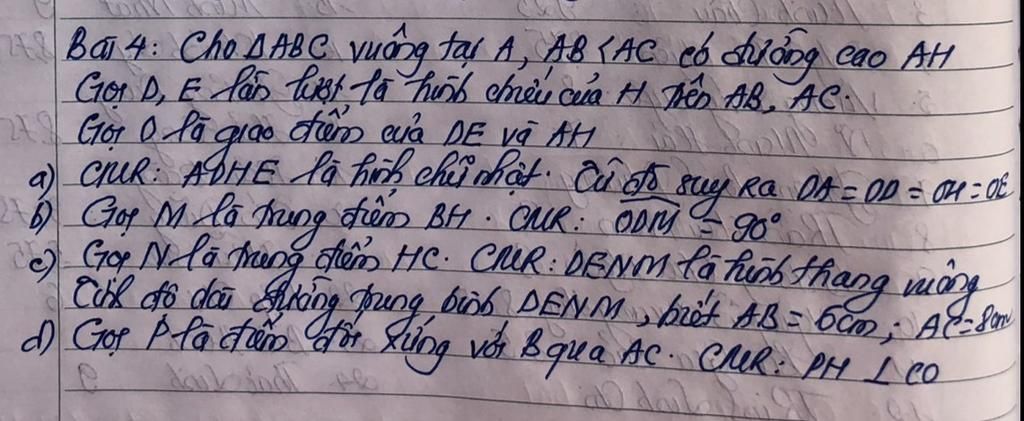 Bài 4: Cho ΔABC vuông tại A, AB < AC có đường cao AH
Gọi D, E lần lượt là hình chiếu của H trên AB, AC.
Gọi O là giao điểm của DE và AH
a) CMR: ADHE là hình chữ nhật. Từ đó suy ra OA = OD = OH = OE
b) Gọi M là trung điểm BH. CMR: ODM = 90°
c) Gọi N là trung điểm HC. CMR: DENM là hình thang vuông
Tính độ dài đường trung bình DENM, biết AB = 6cm; AC = 8cm
d) Gọi P là điểm đối xứng với B qua AC. CMR: PH ⊥ CO